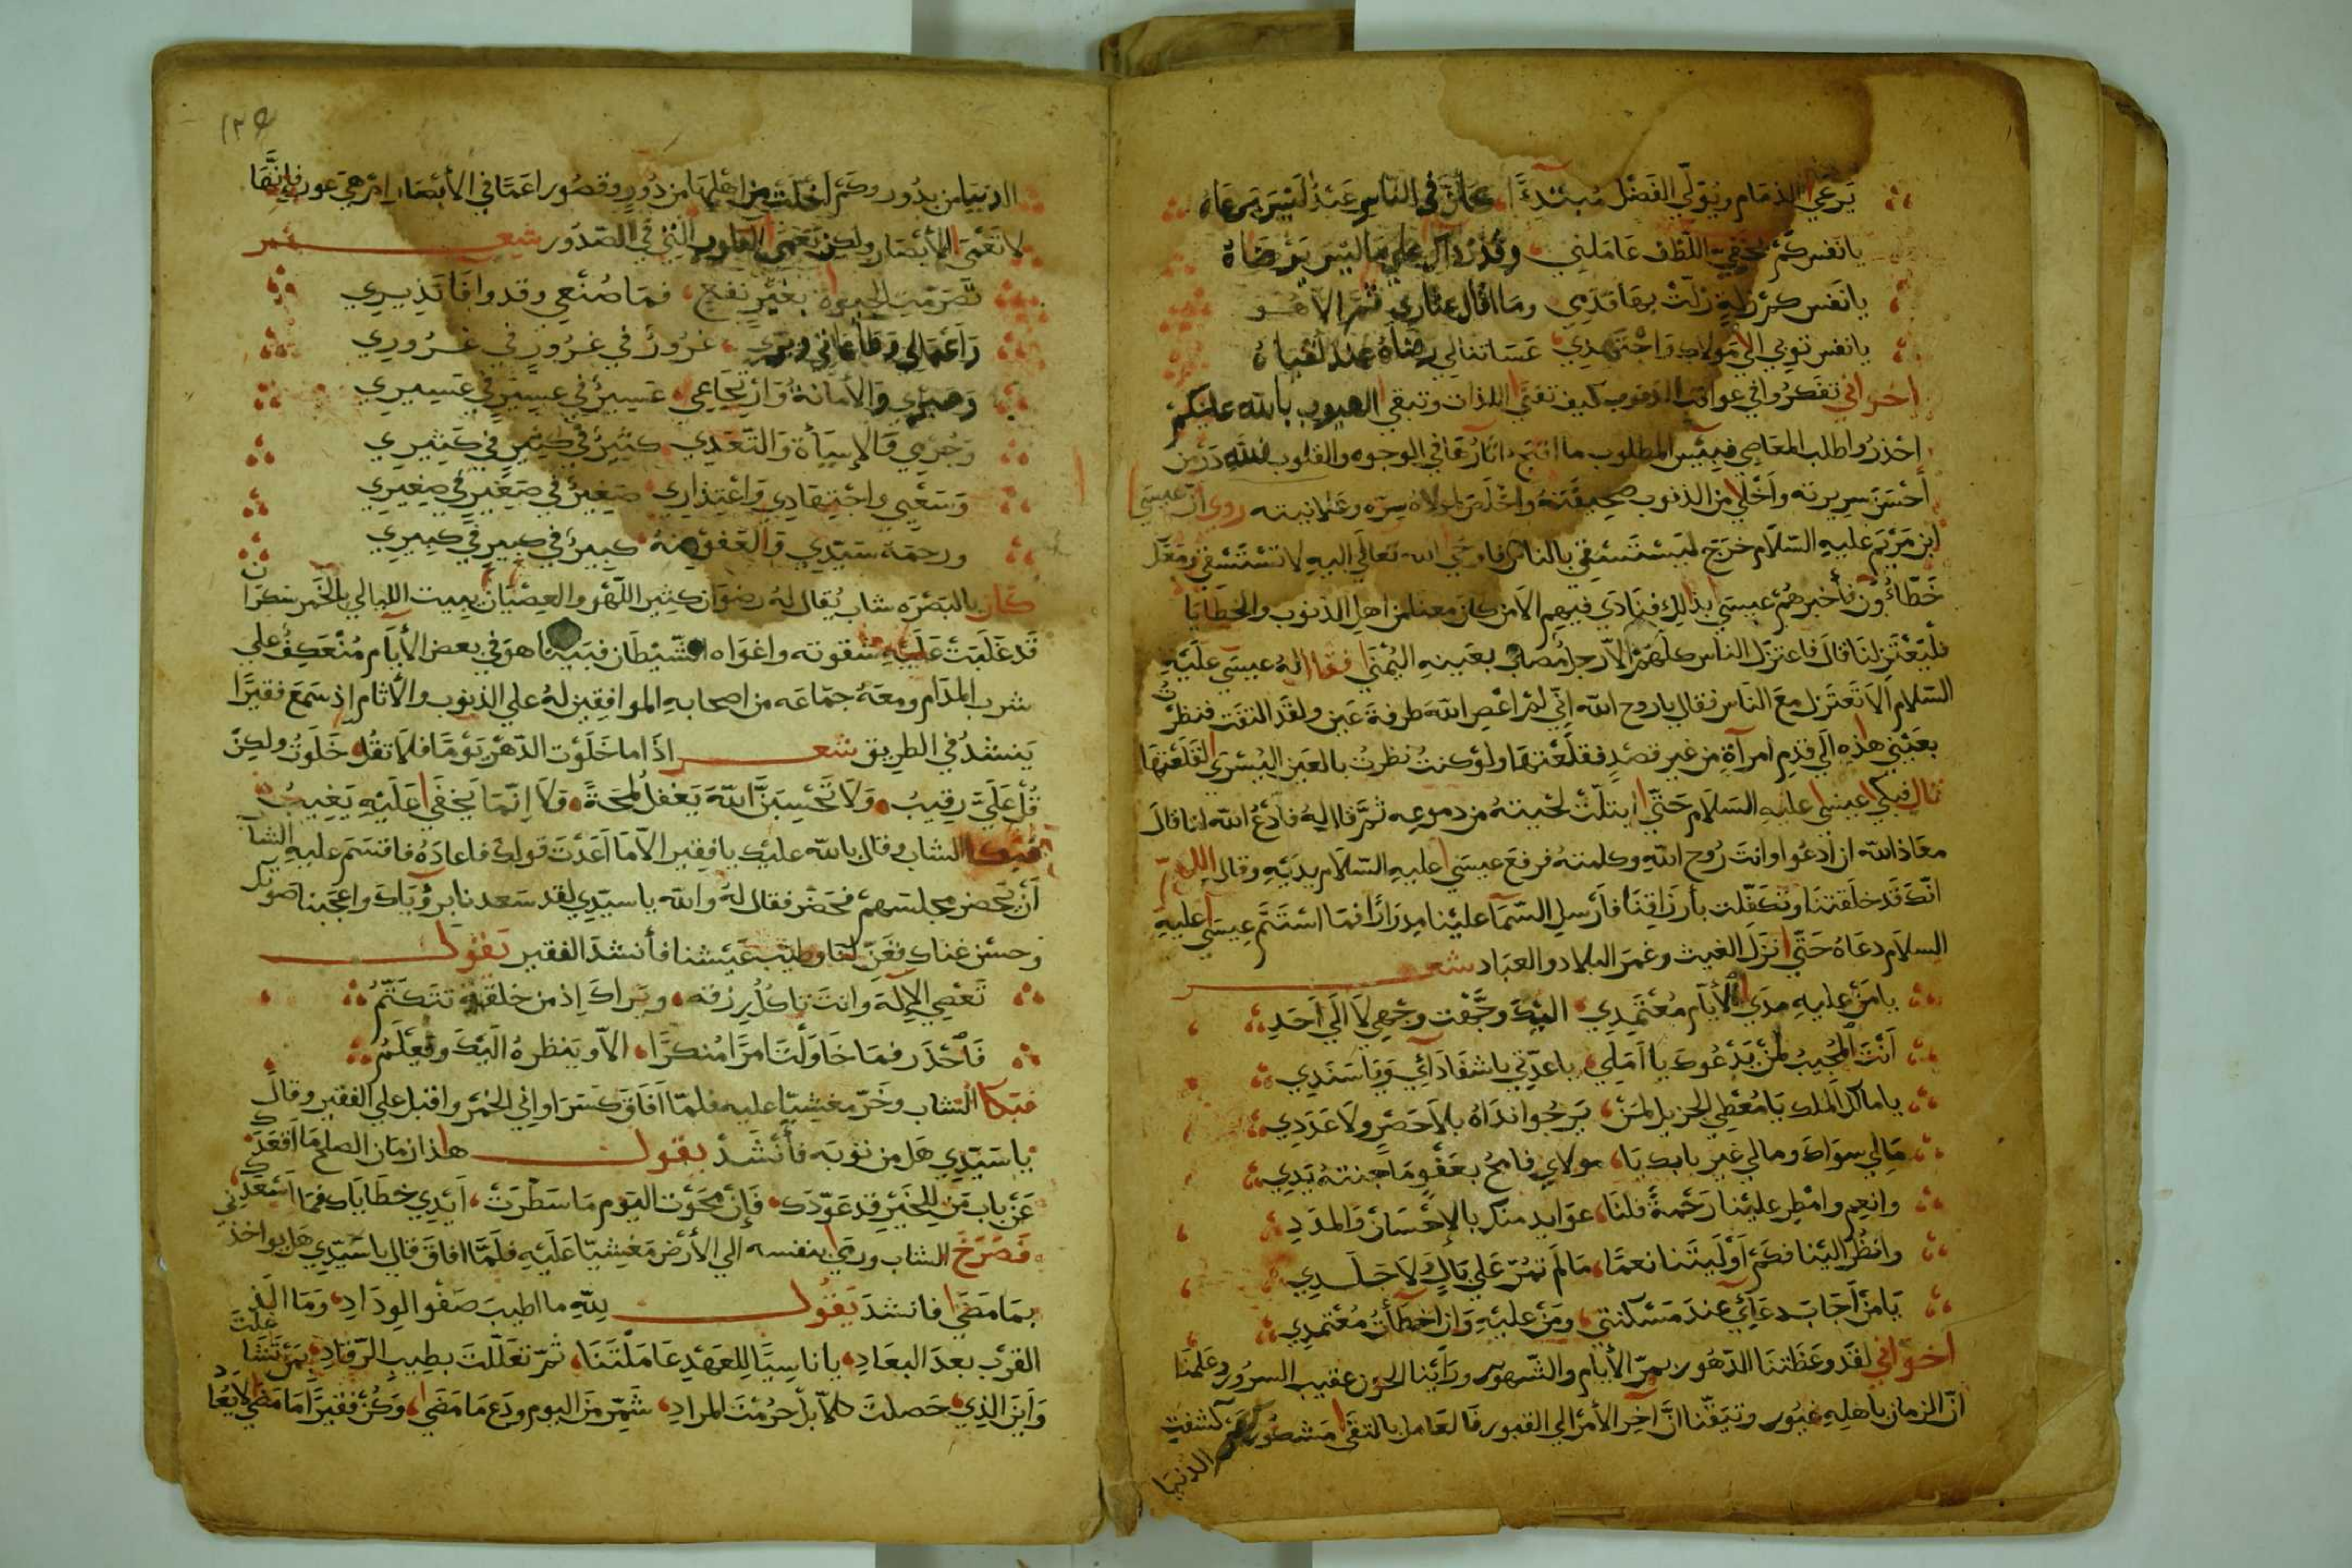 يَرعَي الذمَام ويُوَلّي الفَضْل مُبتَدِءًا في النّاسِ عَبدٌ لَيْسَ يَرعَاهُ
يا نفس كَمْ بخفِيّ اللّطف عَامَلني وقد رَاك علي ما ليْسَ يَرْضَاهُ
يا نَفس كَمْ زلةٍ زلّتْ بهَا قدَمِي ومَا اقَال عثاري ثمَّ الا هُو
يا نفس توبي الي مَولاك وَاجْتَهدِي عَسَا تنالي رضَاهُ عند لقياهُ
اخواني تفَكرُوا في عواقب الذنوب كيف تفنَي اللذات وتبقي العيوب بالله عليكم
احْذرُوا طلب المعَاصي فبِئْس المطلوب ما اقبح اثارُهَا في الوجوه والقلوب لله دَرّ من
أحْسَنَ سريرته وَأخْلَي من الذنوب صَحِيفَتهُ واخْلَصَ لمولاهُ سِرّه وعَلانيته رُوي ان عيسَي
ابن مَرْيَم عليهِ السّلام خرَج ليَسْتَسْقِي بالناس فاوحَي الله تعَالَي اليهِ لا تسْتَسْقي ومَعَك
خَطّاءُون فأخبرهُمْ عيسَي بذلِك فنَادَي فيهِم الا من كانَ معنا من اهلِ الذنوب والخطَايَا
فليَعْتَزلنَا قالَ فاعتزلَ الناس كلّهُمْ الاّ رجلا مُصَاب بعَينهِ اليُمْنَي فقال لهُ عيسَي عليْهِ
السّلام الاَ تَعْتَزل معَ النّاسِ فقال يا روح الله اِنّي لمْ اعْصِ اللهَ طرفةَ عَين ولقَد التفَت فنظرْت
بعَيْني هذِه اِلَي قدَم امرأةٍ مِن غير قصدٍ فقلَعْتهَا ولوْ كنتُ نظرتُ بالعَين اليُسْرَي لقَلَعْتهَا
قال فبكي عيسَي عليهِ السّلام حَتّي ابتلّتْ لحْيتهُ من دموعِه ثمَّ قال لهُ فادْعُ الله لنا قالَ
معَاذ الله ان أدعُوا وانتَ رُوح اللهِ وكلمتهُ فرفعَ عيسَي عليهِ السّلام يدَيْهِ وقال اللهمّ
انّكَ قد خلَقتنَا وتكَفّلت بأرزَاقِنَا فأرْسِلِ السّمَآ علَيْنا مِدرَارًا فما اسْتَتَّم عيسَي عليهِ
السلام دعَاهُ حَتّي انزَلَ الغيث وعَمرَ البلاد والعبَاد شعر
يا مَنْ عليهِ مدَي الأيّام مُعْتَمَدِي اليْكَ وَجّهْت وجْهِي لاَ اِلَي أحَدِ
اَنْتَ المُجيبُ لمَنْ يَدْعُوكَ يا اَمَلِي يا عدّتي يا شفَا دَائِي وَيَا سَنَدِي
يا مالكَ المُلك يَا مُعْطي الجزيل لمَنْ يَرجُوا ندَاهُ بلاَ حَصْرٍ ولاَ عَدَدِ
مَا لي سوَاكَ وما لي غير بابك يَا مولاي فامحُ بعَفْوٍ مَا جنتهُ يَدِي
وانعِم وامْطِر علَيْنا رَحْمةً فلنَا عوَايد منك بالاِحْسَان وَالمدَدِ
وانظُرْ اليْنا فكَمْ أوْلَيْتَنا نعمًا مَا لم تَمُرّ عَلي بَالٍ ولا خَلَدِ
يَا مَنْ اَجَابَ دعَائِي عندَ مَسْئَلتي ومَنْ علَيْهِ وَان اخطأتُ مُعْتَمدِي
اخواني لقَد وعَظَتنَا الدّهُور بمرّ الأيّام والشّهور ورَأيْنا الحزن عقيب السرُور وعَلمْنَا
انّ الزمان باهلهِ عثُور وتيَقّنا انّ آخر الأمْر الي القبور فَالعَامل بالتقَي مَشكُور كم كشفت
الدنيا
الدنيا من بدُور وكَمْ أخلَت من اهلهَا من دُورٍ وقصُور اعَمًا في الأبْصَار اِمْ هيَ عور فاِنّهَا
لا تَعْمَي الأبْصَار ولكِن تَعْمَي القلوب الّتي في الصّدُور شعر
تصَرّمَت الحيوة بغَيْر نفعٍ فمَا صُنْعي وقد وافَا نَذِيرِي
وَاَعْمَالي وَطاعَاتي وَبرّي غرُورٌ في غرُورٍ في غرُورِي
وَصَبْرِي وَالأمَانةُ وَارْتجَاعِي عَسِيرٌ في عَسِيرٍ في عَسِيرِي
وَجُرْمِي وَالاِسَأة وَالتّعَدِي كثيرٌ في كثيرٍ في كَثِيرِي
وَسَعْيي واجْتِهَادِي وَاعْتِذارِي صَغِيرٌ في صَغِيرٍ في صَغِيرِي
ورحمَة سَيّدِي وَالعَفْو مِنهُ كبيرٌ في كبيرٍ في كبيرِي
كان بالبَصْرَه شاب يُقال لهُ رضوَان كثِير اللّهْو والعِصْيَان يبيت الليالي بالخَمر سَكرَان
قَد غلَبَتْ عَلَيْهِ شقوَته واغوَاه الشّيْطَان فبَينما هوَ في بعض الأيّام مُنْعَكِفٌ علي
شرب المدَام ومعَهُ جمَاعَه من اصحابهِ الموافِقين لهُ علي الذنوب والأثام اِذ سَمَعَ فقيرًا
يَنشدُ في الطريق شعر اذَا ما خَلَوْت الدّهْر يَوْمًا فلاَ تقُل خَلَوتُ ولكِنْ
قُلْ عَلَيّ رقِيبُ وَلاَ تَحْسِبَنَّ اللهَ يَغْفل لمْحَةً وَلاَ اِنّمَا يخفَي عَلَيْهِ يَغِيبُ
فبَكا الشاب وقال بالله عليْك يا فقير الاّ مَا أعَدْت قولَكَ فاعادَهُ فاقسَم عليهِ الشابّ
أنْ يحْضر مجلسَهمْ فحَضَرَ فقال لهُ والله يا سيّدِي لقد سَعدنا برؤيَاكَ واعجَبنا صَوتك
وحسْن غناك فغَنّ لنا وطيّب عَيْشنا فأنشدَ الفقير يَقُول
تَعْصِي الاِلَهَ وانتَ تاكلُ رِزقه ويَراكَ إذ من خلقهِ تتكَتّمُ
فَاحْذَر فمَا حَاولْتَ امرًا مُنكرًا الاّ ويَنظرهُ الَيْكَ ويَعْلَمُ
فبَكا الشاب وخَرّ مغشيّا عليهِ فلمّا أفَاقَ كَسَرَ اوانِي الخمْر واقبل علي الفقير وقالَ
يا سَيّدِي هَل من توبَه فأنْشَدْ يقول هاذا زمان الصلح مَا اقعَدَك
عَنْ باب مَن للخَيْر قد عَوّدَك فَاِنْ محَوْت اليَوم مَا سَطّرَتْ أيْدِي خطَايَاك فمَا اسْعَدَك
فَصَرَخَ الشاب ورمَي بنفسه الي الأرْض مَغشيّا عَلَيْهِ فلَمّا افاقَ قال يا سَيّدِي هَل يواخذني
بمَا مَضَي فانشدَ يَقُول لِلّهِ ما اطيبَ صَفْو الوِدَادِ وَمَا الذ
القرْب بعدَ البعَادِ يا ناسِيًا لِلعَهْدِ عَامَلْتَنَا ثمّ تعَلّلتَ بطِيبِ الرّقادِ بمَنْ تشَاغلتَ
وَأينَ الذِي حَصلتَ كلاّ بلْ حرُمْتَ المرادِ شَمِّر منَ اليوم ودَع مَا مَضَي وَكُنْ فقيرًا مَا مَضَي لا يُعاد